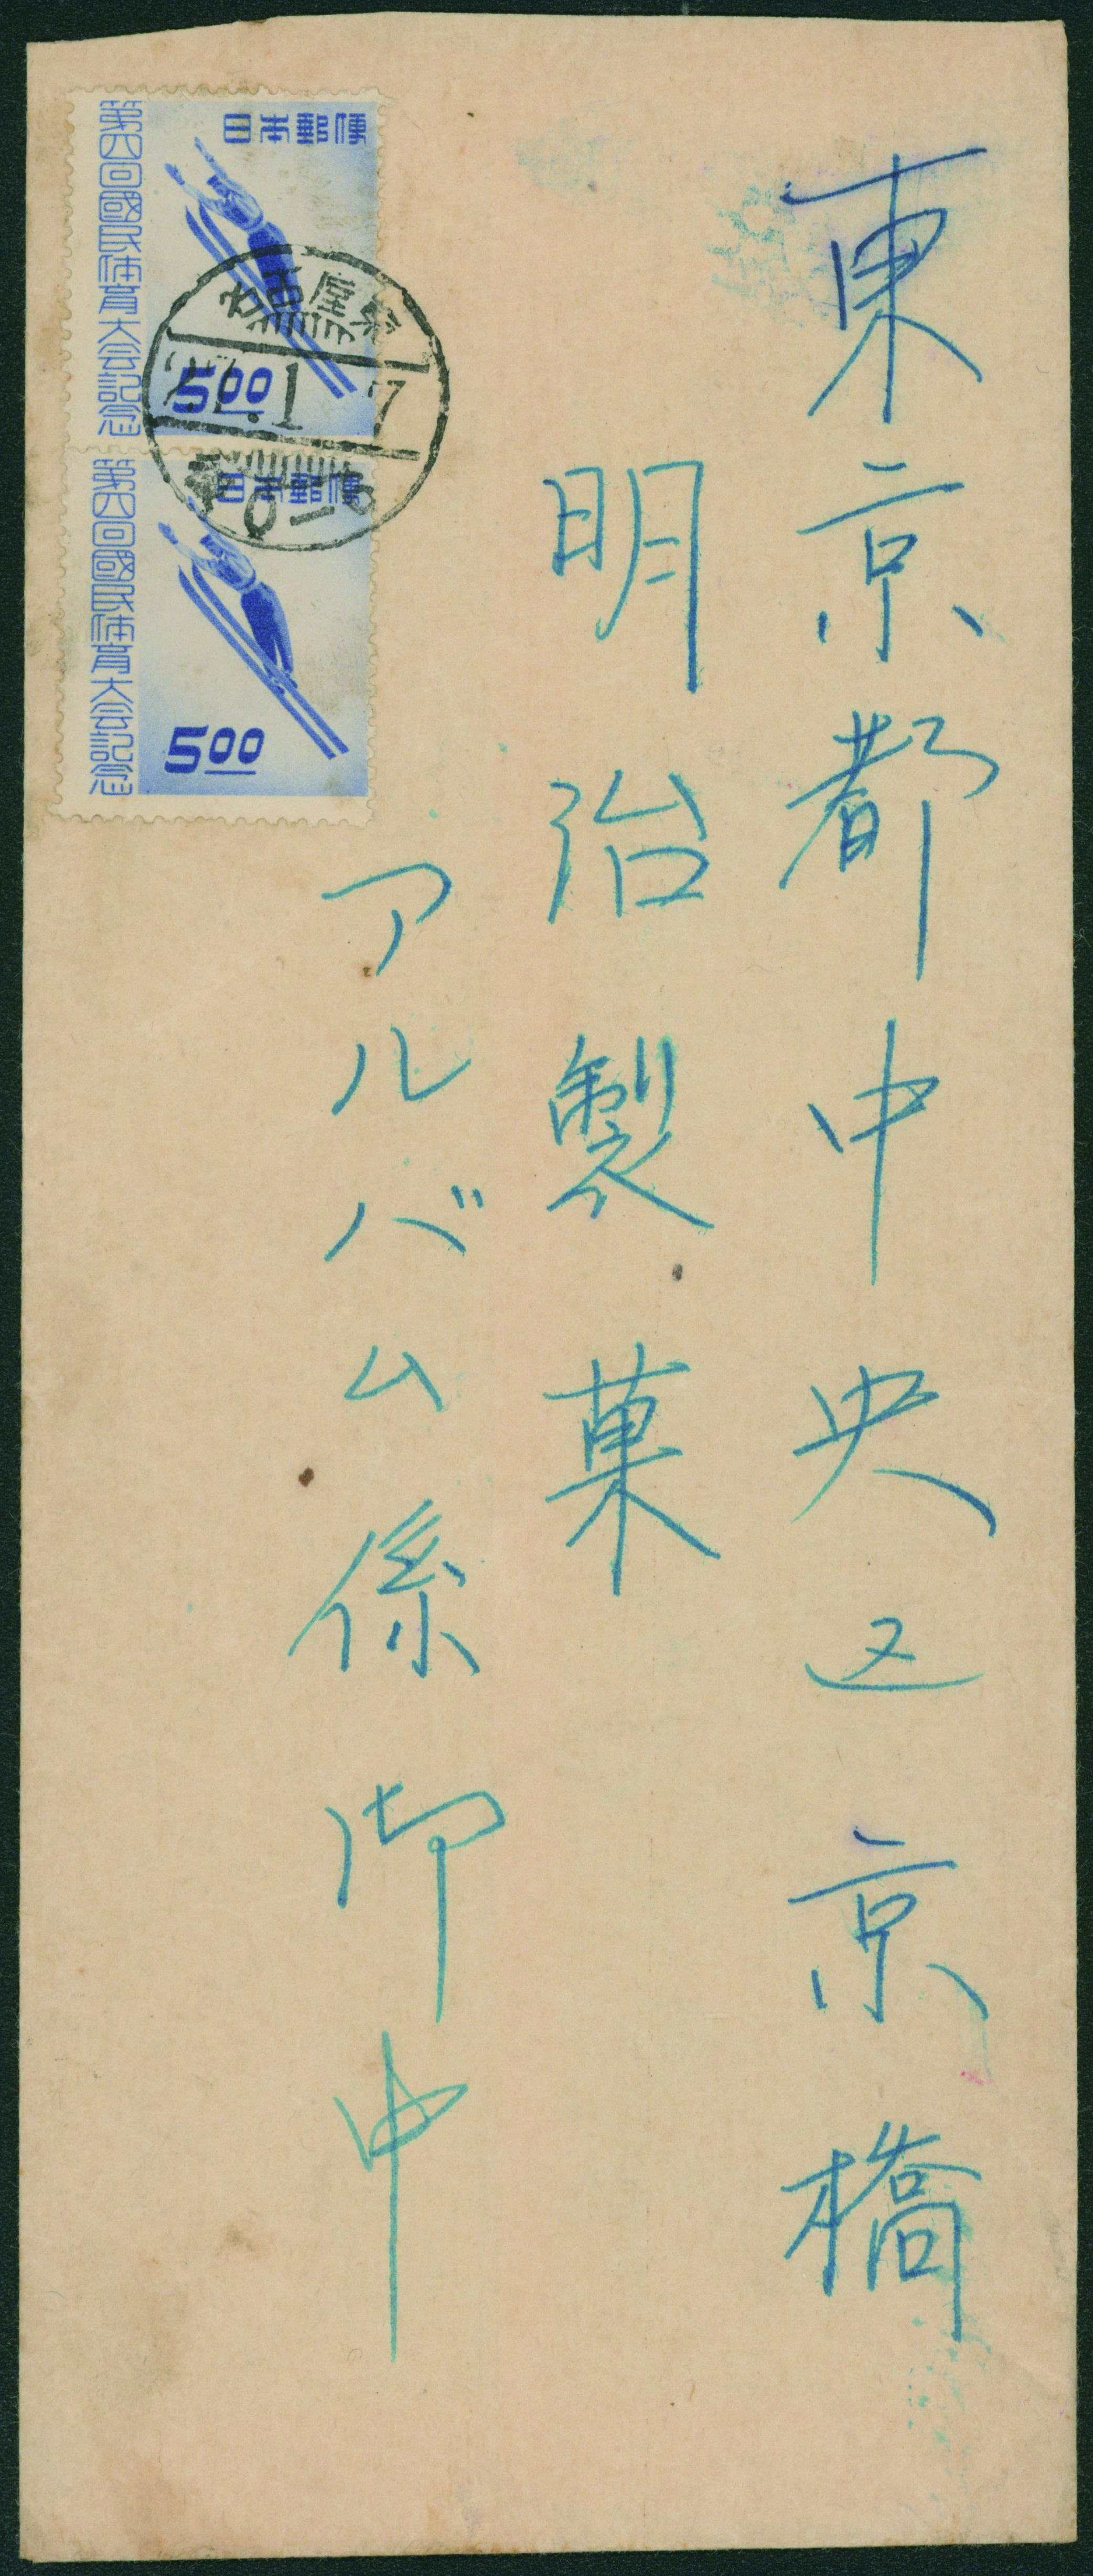 東京都中央区京橋
明治製菓
アルバム係御中
日本郵便
第四回國民体育大会記念
500
名古屋
1. 7
日本郵便
第四回國民体育大会記念
500